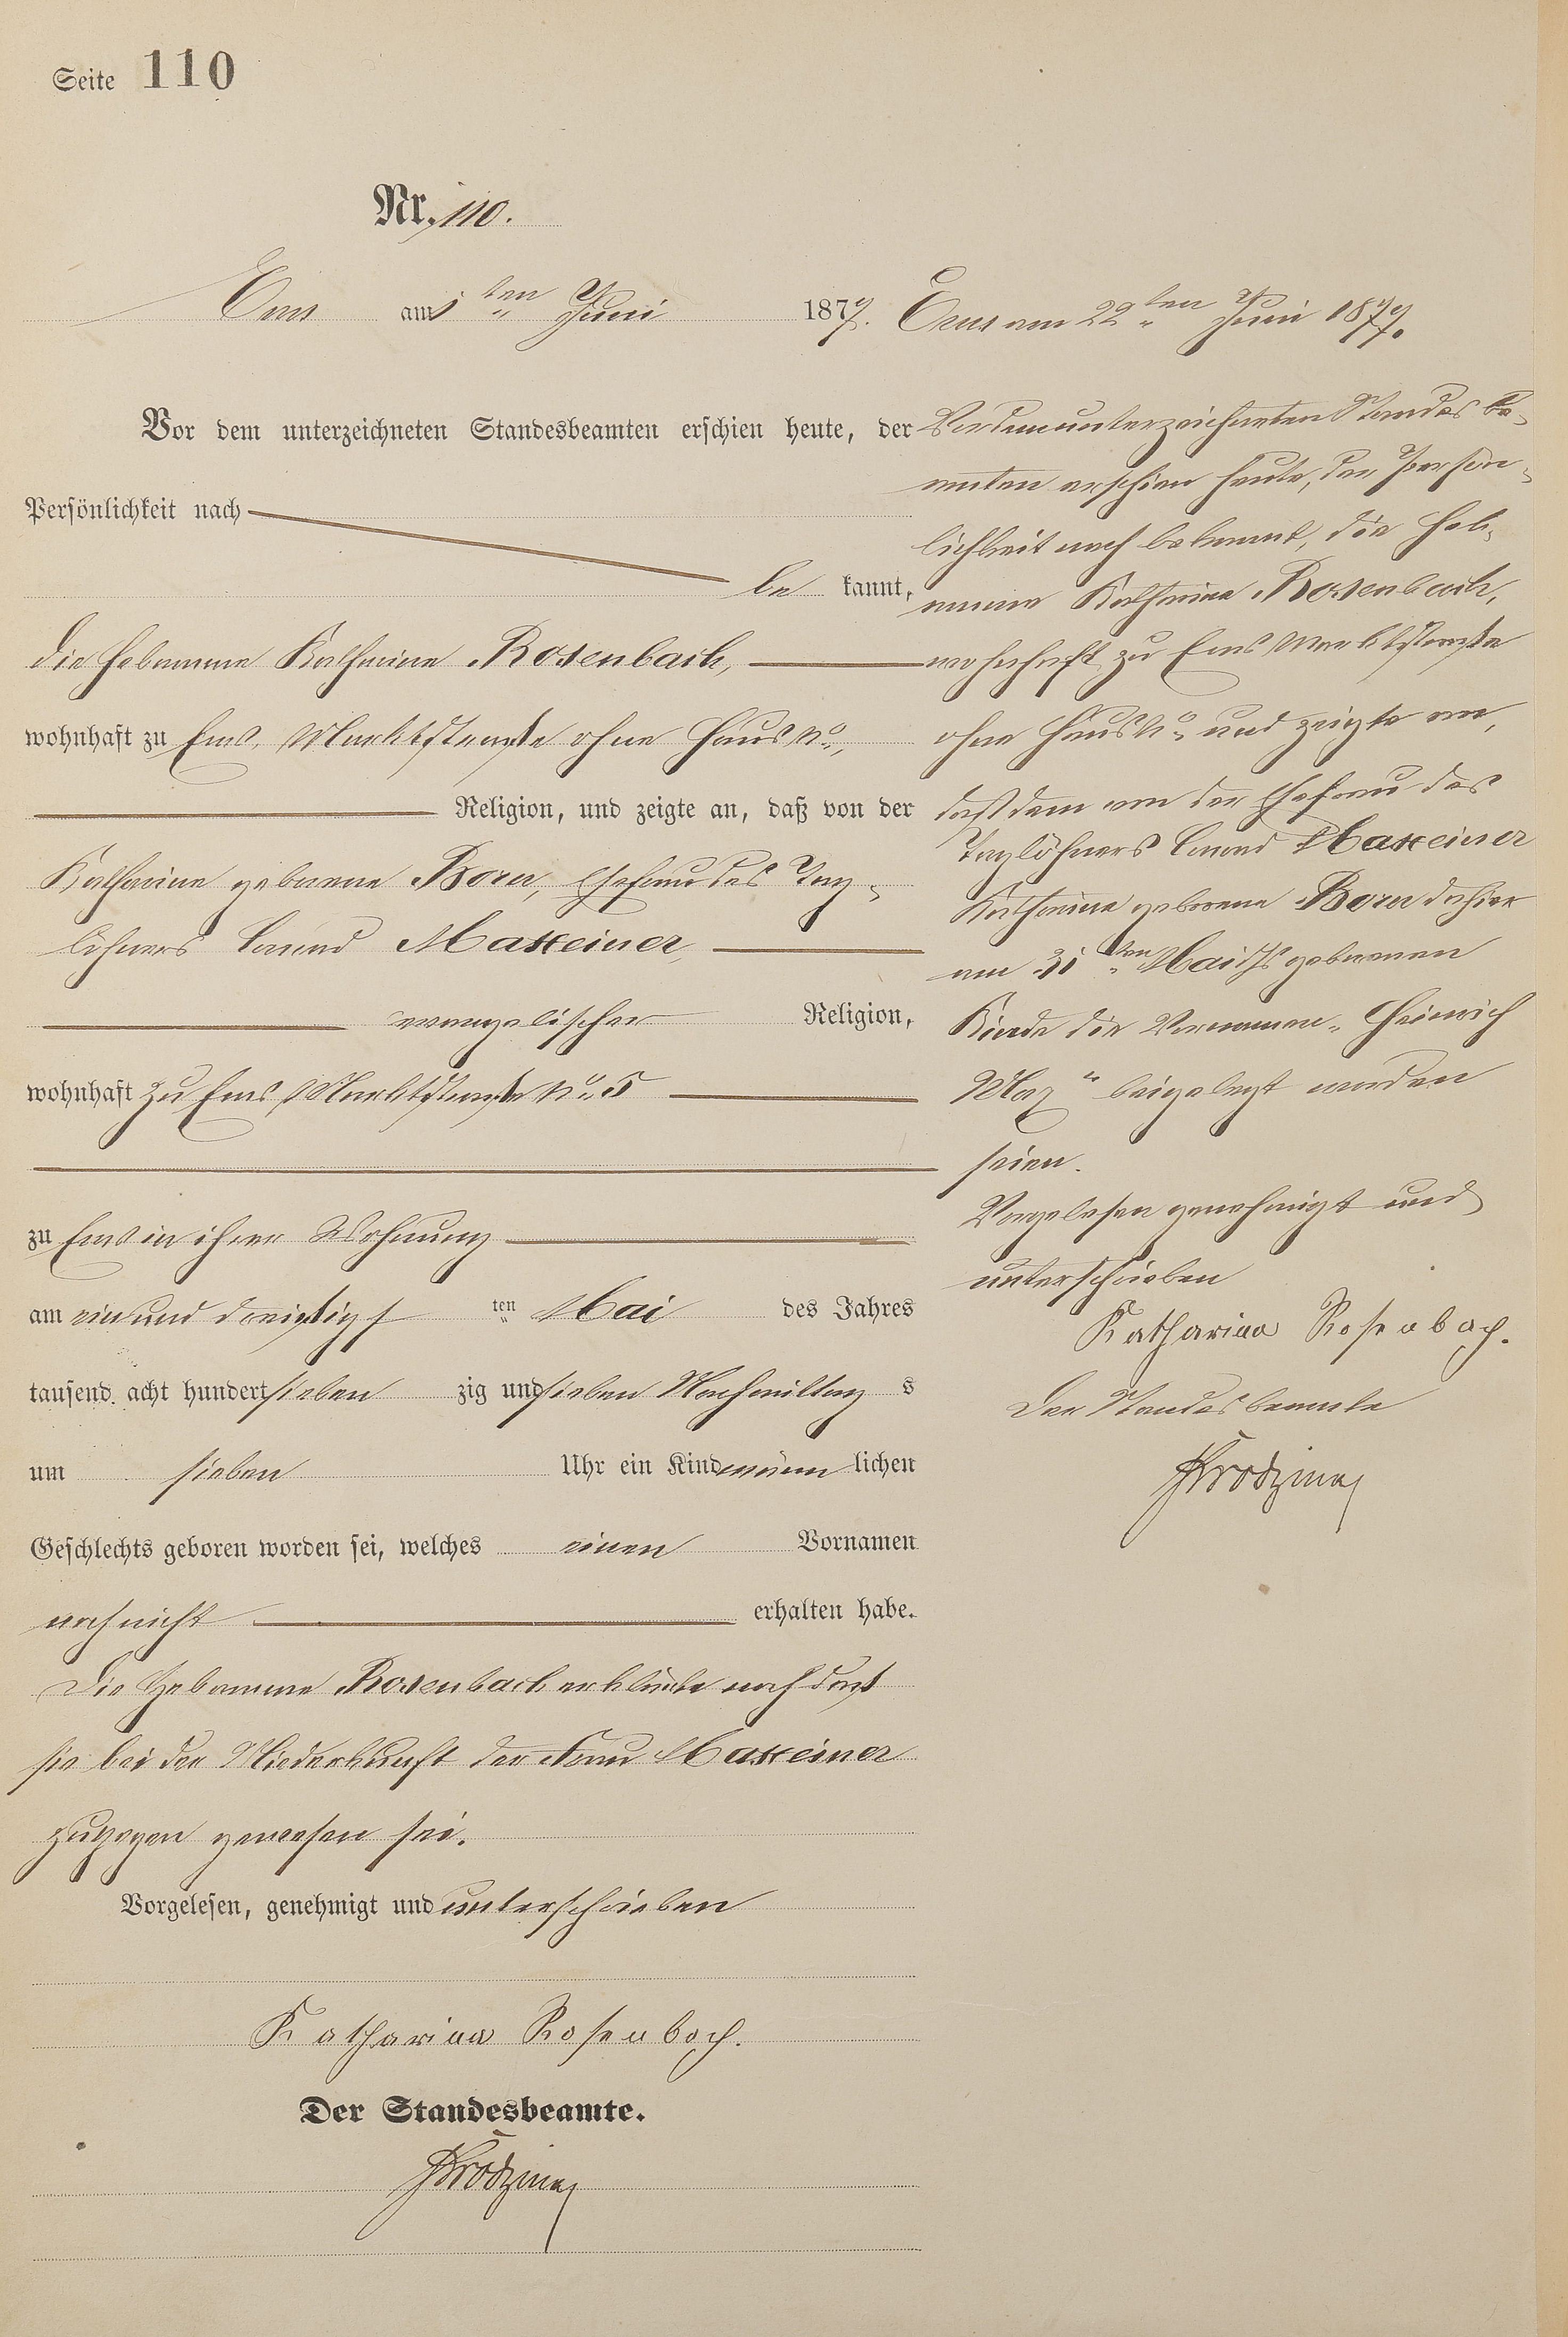 Seite 110
Nr. 110.
Ems am 1ten Juni 1877.
Vor dem unterzeichneten Standesbeamten erschien heute, der
Persönlichkeit nach
be kannt,
die Hebamme Katharina Rosenbach,
wohnhaft zu Ems, Marktstraße ohne Haus No,
Religion, und zeigte an, daß von der
Katharina geborene Born, Ehefrau des Tag-
löhners Conrad Maxeiner,
evangelischer Religion,
wohnhaft zu Ems Marktstraße No 5
zu Ems in ihrer Wohnung
am ein und dreißigs ten Mai des Jahres
tausend acht hundert sieben zig und sieben Nachmittag s
um sieben Uhr ein Kind männ lichen
Geschlechts geboren worden sei, welches einen Vornamen
noch nicht erhalten habe.
Die Hebamme Rosenbach erklärte noch daß
sie bei der Niederkunft der Frau Maxeiner
zugegen gewesen sei.
Vorgelesen, genehmigt und unterschrieben
Katharina Rosenbach.
Der Standesbeamte.
Ems am 22ten Juni 1877.
Vor dem unterzeichneten Standesbe-
amten erschien heute, der Persön-
lichkeit nach bekannt, die Heb-
amme Katharina Rosenbach,
wohnhaft zu Ems Marktstraße
ohne Haus No und zeigte an,
daß dem von der Ehefrau des
Taglöhners Conrad Maxeiner
Katharina geborene Born dahier
am 31ten Mai ds Js geborenen
Kinde die Vornamen „Heinrich
Max“ beigelegt worden
seien.
Vorgelesen genehmigt und
unterschrieben
Katharina Rosenbach.
Der Standesbeamte